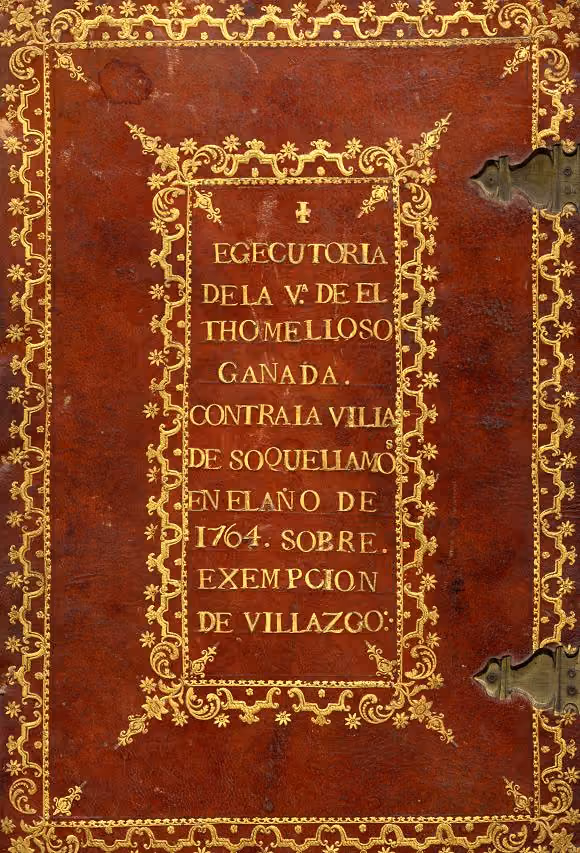 EGECUTORIA
DE LA V.ª DE EL
THOMELLOSO
GANADA.
CONTRA LA VILLA
DE SOQUELLAMOS
EN EL AÑO DE
1764. SOBRE.
EXEMPCION
DE VILLAZGO: